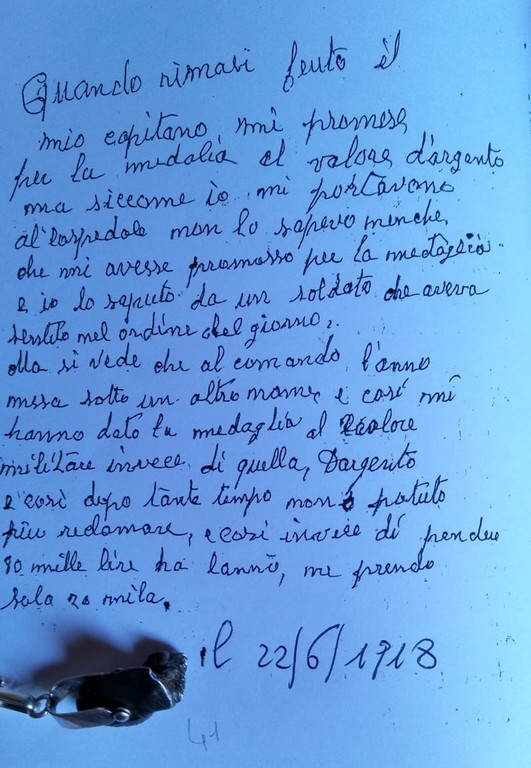 Quando rimasi ferito il
mio capitano, mi promese
per la medalia al valore d'argento
ma siccome io mi portavano
al'ospedale non lo sapevo menche,
che mi avesse promosso per la medaglia
e io lo saputo da un soldato che aveva
sentito nel ordine del giorno,.
Ma si vede che al comando l'anno
messa sotto un altro nome, e cosí mi
hanno dato la medaglia al valore
militare invece di quella, Dargento
e cosi dopo tante tempo non ó potuto
piu reclamare, e cosi invece di prendere
80 mille lire ha lanno, me prendo
sola 20 mila.
il 22/6/1918
41